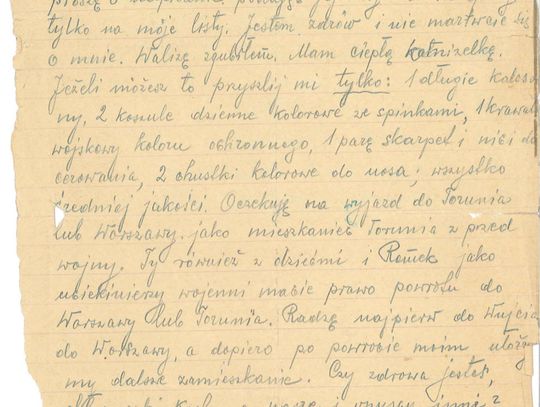 tylko na moje listy. Jestem zdrów i nie martwcie się
o mnie. Walizę zgubiłem. Mam ciepłą kamizelkę.
Jeżeli możesz to przyszlij mi tylko: 1 długie kaleso-
ny, 2 koszule dzienne kolorowe ze spinkami, 1 krawat
wojskowy koloru ochronnego, 1 parę skarpet i nici do
cerowania, 2 chustki kolorowe do nosa; wszystko
średniej jakości. Oczekuję na wyjazd do Torunia
lub Warszawy, jako mieszkaniec Torunia z przed
wojny. Ty również z dziećmi i Romek jako
uciekinierzy wojenni macie prawo powrotu do
Warszawy lub Torunia. Radzę najpierw do Wujcia
do Warszawy, a dopiero po powrocie moim ułoży-
my dalsze zamieszkanie. Czy zdrowa jesteś,